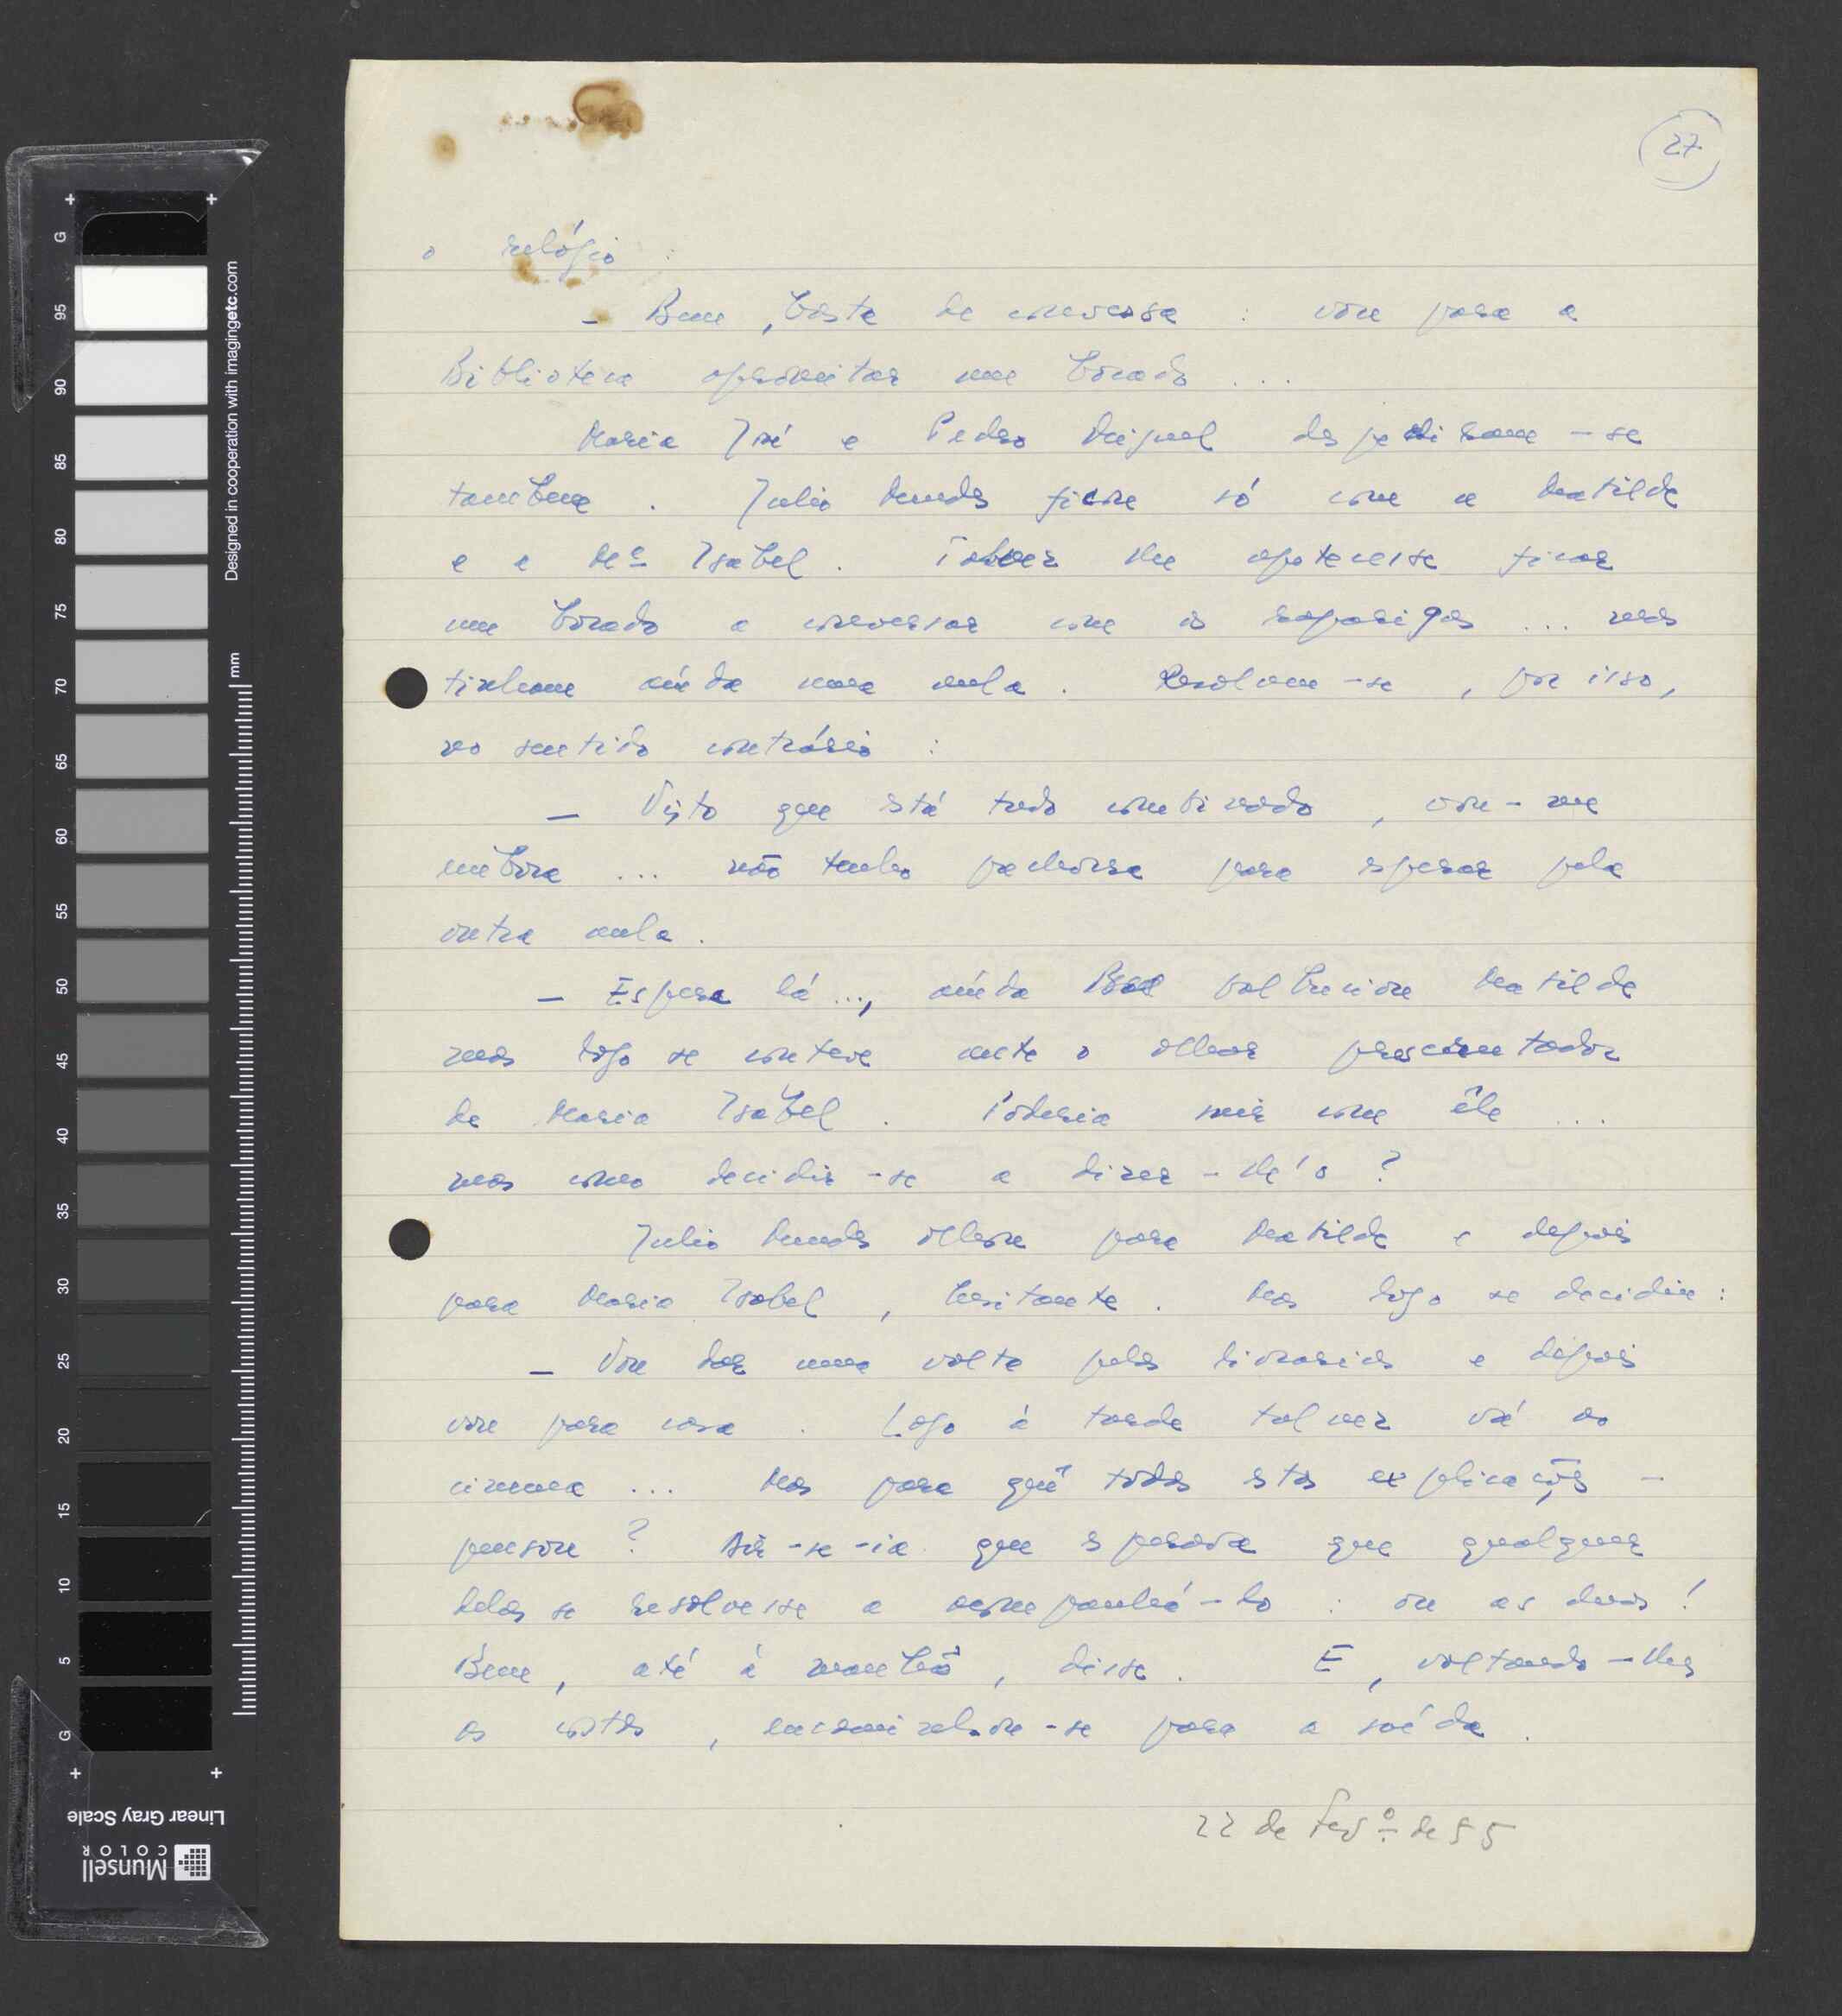 27
o relógio :
– Bem, basta de conversa : vou para a
Biblioteca aproveitar um bocado ...
Maria José e Pedro Miguel despediram-se
também . Julio Mendes ficou só com a Matilde
e a Mª Isabel . Talvez lhe apetecesse ficar
um bocado a conversar com as raparigas ... mas
tinham ainda uma aula . Resolveu-se , por isso,
no sentido contrário :
– Visto que está tudo combinado , vou-me
embora ... não tenho pachorra para esperar pela
outra aula .
– Espera lá ..., ainda balbuciou Matilde
mas logo se conteve ante o olhar perscrutador
de Maria Isabel . Poderia sair com êle ...
mas como decidir-se a dizer-lh'o ?
Julio Mendes olhou para Matilde e depois
para Maria Isabel , hesitante . Mas logo se decidiu :
– Vou dar uma volta pelas livrarias e depois
vou para casa . Logo à tarde talvez vá ao
cinema ... Mas para quê todas estas explicações –
pensou ? Dir-se-ia que esperava que qualquer
delas se resolvesse a acompanhá-lo : ou as duas !
Bem, até à manhã , disse . E, voltando-lhes
as costas , encaminhou-se para a saída .
22 de Fevº de 55
Designed in cooperation with imagingetc.com
mm
G 95 90 85 80 75 70 65 60 55 50 45 40 35 30 25 20 15 10 5 G
Linear Gray Scale
Munsell
COLOR